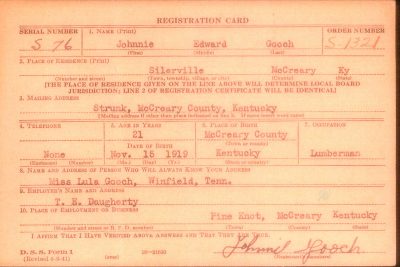 REGISTRATION CARD
SERIAL NUMBER 1. NAME (Print) ORDER NUMBER
S 76 Johnnie Edward Gooch S-1321
(First) (Middle) (Last)
2. PLACE OF RESIDENCE (Print)
Silerville McCreary Ky
(Number and street) (Town, township, village, or city) (County) (State)
[THE PLACE OF RESIDENCE GIVEN ON THE LINE ABOVE WILL DETERMINE LOCAL BOARD
JURISDICTION; LINE 2 OF REGISTRATION CERTIFICATE WILL BE IDENTICAL]
3. MAILING ADDRESS
Strunk, McCreary County, Kentucky
[Mailing address if other than place indicated on line 2. If same insert word same]
4. TELEPHONE 5. AGE IN YEARS 6. PLACE OF BIRTH 7. OCCUPATION
21 McCreary County
DATE OF BIRTH (Town or county)
None Nov. 15 1919 Kentucky Lumberman
(Exchange) (Number) (Mo.) (Day) (Yr.) (State or country)
8. NAME AND ADDRESS OF PERSON WHO WILL ALWAYS KNOW YOUR ADDRESS
Miss Lula Gooch, Winfield, Tenn.
9. EMPLOYER'S NAME AND ADDRESS
T. E. Daugherty
10. PLACE OF EMPLOYMENT OR BUSINESS
Pine Knot, McCreary Kentucky
(Number and street or R. F. D. number) (Town) (County) (State)
I AFFIRM THAT I HAVE VERIFIED ABOVE ANSWERS AND THAT THEY ARE TRUE.
D. S. S. Form 1
(over)
Gooch